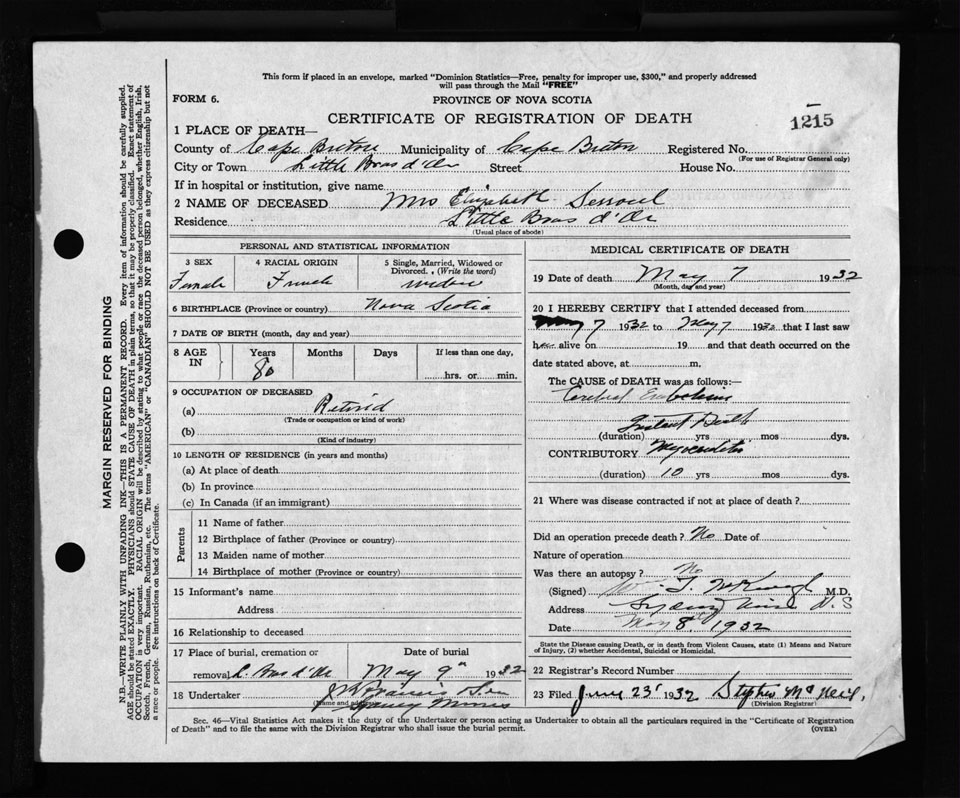 This form if placed in an envelope, marked "Dominion Statistics—Free, penalty for improper use, $300," and properly addressed
will pass through the Mail "FREE"
FORM 6.
PROVINCE OF NOVA SCOTIA
CERTIFICATE OF REGISTRATION OF DEATH
1215
1 PLACE OF DEATH—
County of Cape Breton Municipality of Cape Breton Registered No.
(For use of Registrar General only)
City or Town Little Bras d'Or Street House No.
If in hospital or institution, give name
2 NAME OF DECEASED Mrs Elizabeth
Residence Little Bras d'Or
(Usual place of abode)
PERSONAL AND STATISTICAL INFORMATION
3 SEX
Female
4 RACIAL ORIGIN
French
5 Single, Married, Widowed or
Divorced. (Write the word)
widow
6 BIRTHPLACE (Province or country) Nova Scotia
7 DATE OF BIRTH (month, day and year)
8 AGE
IN
Years
80
Months
Days
If less than one day,
hrs. or min.
9 OCCUPATION OF DECEASED
(a) Retired
(Trade or occupation or kind of work)
(b)
(Kind of industry)
10 LENGTH OF RESIDENCE (in years and months)
(a) At place of death
(b) In province
(c) In Canada (if an immigrant)
Parents
11 Name of father
12 Birthplace of father (Province or country)
13 Maiden name of mother
14 Birthplace of mother (Province or country)
15 Informant's name
Address
16 Relationship to deceased
17 Place of burial, cremation or
removal L. Bras d'Or
Date of burial
May 9th 1932
18 Undertaker
(Name and address)
Sydney Mines
MEDICAL CERTIFICATE OF DEATH
19 Date of death May 7 1932
(Month, day and year)
20 I HEREBY CERTIFY that I attended deceased from
May 7 1932 to May 7 1932 that I last saw
h alive on 19 and that death occurred on the
date stated above, at m,
The CAUSE of DEATH was as follows:—
Cerebral Embolism
Instant Death
(duration) yrs mos dys.
CONTRIBUTORY Myocarditis
(duration) 10 yrs mos dys.
21 Where was disease contracted if not at place of death?
Did an operation precede death? No Date of
Nature of operation
Was there an autopsy? No
(Signed) M.D.
Address Sydney Mines N.S
Date May 8th 1932
State the Disease causing Death, or in death from Violent Causes, state (1) Means and Nature
of Injury, (2) whether Accidental, Suicidal or Homicidal.
22 Registrar's Record Number
23 Filed June 23rd 1932 Stephen McNeil,
(Division Registrar)
Sec. 46—Vital Statistics Act makes it the duty of the Undertaker or person acting as Undertaker to obtain all the particulars required in the "Certificate of Registration
of Death" and to file the same with the Division Registrar who shall issue the burial permit.
(OVER)
MARGIN RESERVED FOR BINDING
N.B.—WRITE PLAINLY WITH UNFADING INK—THIS IS A PERMANENT RECORD. Every item of information should be carefully supplied.
AGE should be stated EXACTLY. PHYSICIANS should STATE CAUSE OF DEATH in plain terms, so that it may be properly classified. Exact statement of
OCCUPATION is very important. RACIAL ORIGIN will be described by stating to what people or race the deceased person belonged, whether English, Irish,
Scotch, French, German, Russian, Ruthenian, etc. The terms "AMERICAN" or "CANADIAN" SHOULD NOT BE USED as they express citizenship but not
a race or people. See instructions on back of Certificate.